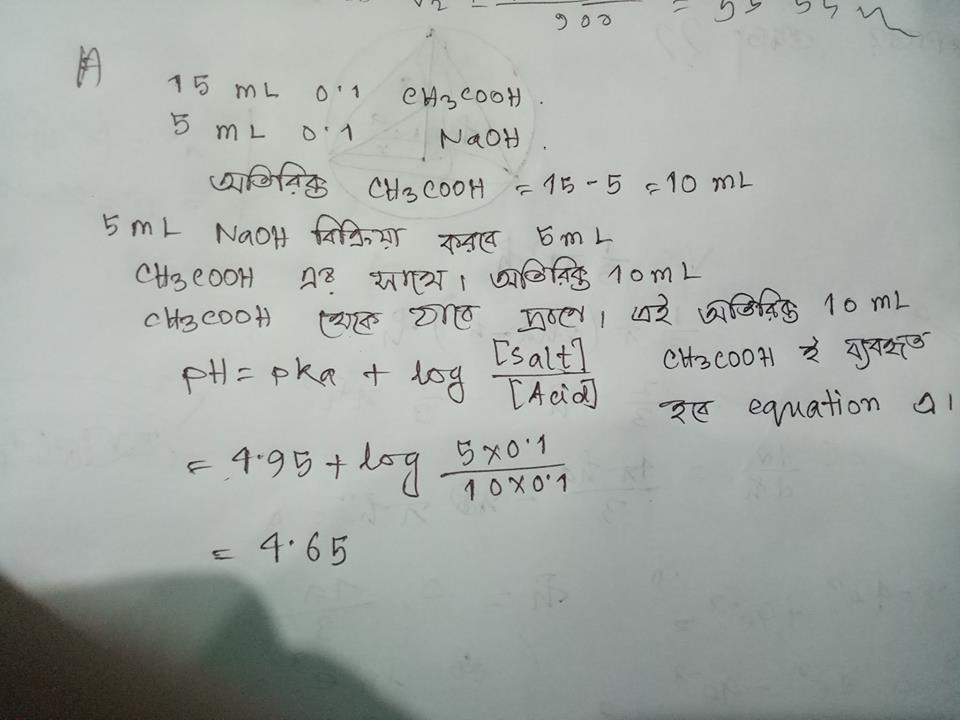 900 = 55.55
A
15 mL 0.1 CH3COOH.
5 mL 0.1 NaOH.
অতিরিক্ত CH3COOH = 15 - 5 = 10 mL
5 mL NaOH বিক্রিয়া করবে 5 mL
CH3COOH এর সাথে। অতিরিক্ত 10 mL
CH3COOH থেকে যাবে দ্রবণে। এই অতিরিক্ত 10 mL
CH3COOH ই ব্যবহৃত
হবে equation এ।
pH = pka + log [Salt] / [Acid]
= 4.95 + log 5×0.1 / 10×0.1
= 4.65